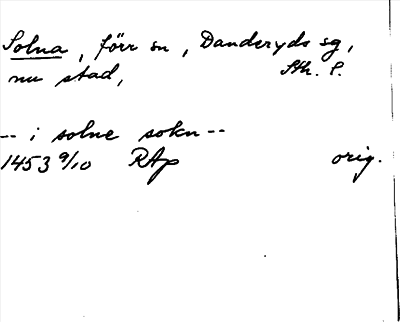 Solna, förr sn, Danderyds sg,
nu stad, Sth. l.
-- i solne sokn --
1453 9/10 RAp orig.